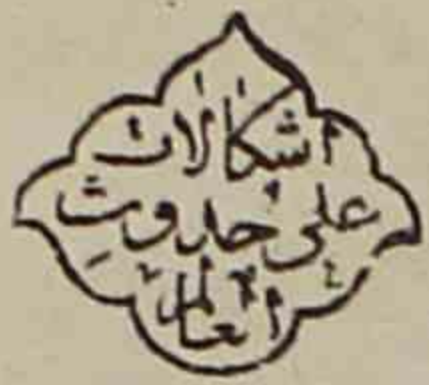 اشكالات
على حدوث
العالم